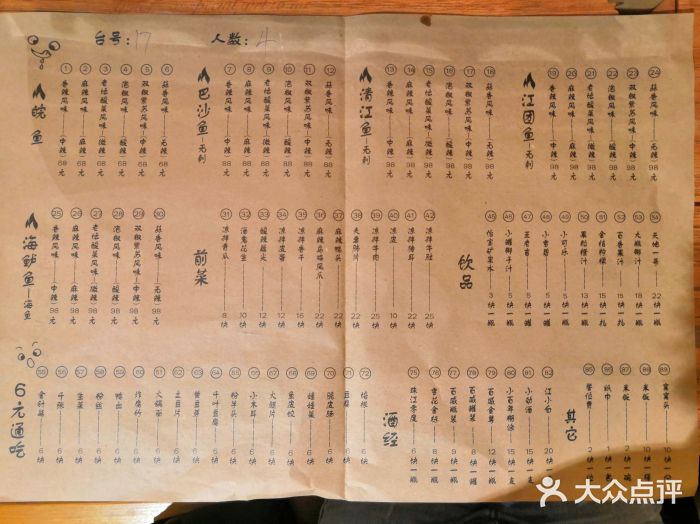 台号：17
人数：4
鮰鱼
① 香辣风味——（中辣）68元
② 麻辣风味——（麻辣）68元
③ 老坛酸菜风味——（微辣）68元
④ 泡椒风味——（酸辣）68元
⑤ 双椒紫苏风味——（中辣）68元
⑥ 蒜香风味——（无辣）68元
巴沙鱼—无刺
⑦ 香辣风味——（中辣）98元
⑧ 麻辣风味——（麻辣）98元
⑨ 老坛酸菜风味——（微辣）98元
⑩ 泡椒风味——（酸辣）98元
⑪ 双椒紫苏风味——（中辣）98元
⑫ 蒜香风味——（无辣）98元
清江鱼—无刺
⑬ 香辣风味——（中辣）98元
⑭ 麻辣风味——（麻辣）98元
⑮ 老坛酸菜风味——（微辣）98元
⑯ 泡椒风味——（酸辣）98元
⑰ 双椒紫苏风味——（中辣）98元
⑱ 蒜香风味——（无辣）98元
江团鱼—无刺
⑲ 香辣风味——（中辣）98元
⑳ 麻辣风味——（麻辣）98元
㉑ 老坛酸菜风味——（微辣）98元
㉒ 泡椒风味——（酸辣）98元
㉓ 双椒紫苏风味——（中辣）98元
㉔ 蒜香风味——（无辣）98元
海鲈鱼—海鱼
㉕ 香辣风味——（中辣）98元
㉖ 麻辣风味——（麻辣）98元
㉗ 老坛酸菜风味——（微辣）98元
㉘ 泡椒风味——（酸辣）98元
㉙ 双椒紫苏风味——（中辣）98元
㉚ 蒜香风味——（无辣）98元
前菜
㉛ 凉拌黄瓜——8块
㉜ 酒鬼花生——10块
㉝ 酸辣蕨尖——12块
㉞ 凉拌皮蛋——12块
㉟ 凉拌香干——16块
㊱ 麻辣鸟喙凤爪——22块
㊲ 麻辣鸭头——22块
㊳ 夫妻肺片——22块
㊴ 凉拌牛肉——25块
㊵ 凉皮——10块
㊶ 凉拌猪耳——22块
㊷ 凉拌牛肚——25块
饮品
㊺ 怡宝矿泉水——3块一瓶
㊻ 小罐椰子汁——5块一罐
㊼ 王老吉——5块一罐
㊽ 小雪碧——5块一瓶
㊾ 小可乐——5块一瓶
㊿ 果粒橙汁——13块一瓶
51 金桔柠檬——15块一扎
52 百香果汁——15块一扎
53 大瓶椰汁——18块一瓶
54 天地一号——22块一瓶
6元通吃
55 金针菇——6块
56 干丝——6块
57 生菜——6块
58 粉丝——6块
59 鸭血——6块
60 炸腐竹——6块
61 火锅面——6块
62 土豆片——6块
63 黄豆芽——6块
64 千叶豆腐——6块
65 粉芋头——6块
66 小木耳——6块
67 火腿片——6块
68 鱼皮饺——6块
69 娃娃菜——6块
70 脆皮肠——6块
71 豆腐——6块
72 海根——6块
酒经
75 珠江零度——6块一瓶
76 雪花金标——8块一瓶
77 百威瓶装——9块一瓶
78 百威罐装——8块一罐
79 百威金尊——12块一瓶
80 小百年糊涂——15块一支
81 小劲酒——15块一支
82 江小白——20块一瓶
其它
85 餐位费——2块一位
86 纸巾——1块一包
87 米饭——2块一碗
88 米饭——10块一桶
89 窝窝头——10块
大众点评